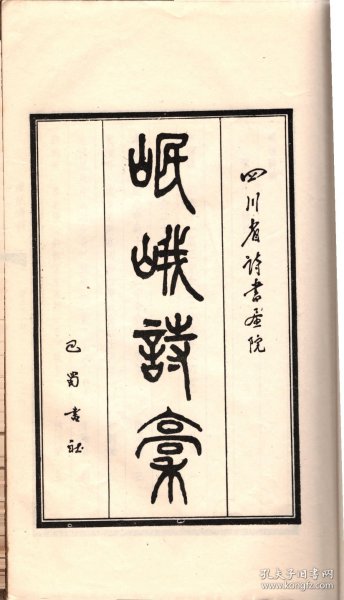 四川省诗书画院
岷峨詩稾
巴蜀书社
孔夫子旧书网
www.kongfz.com